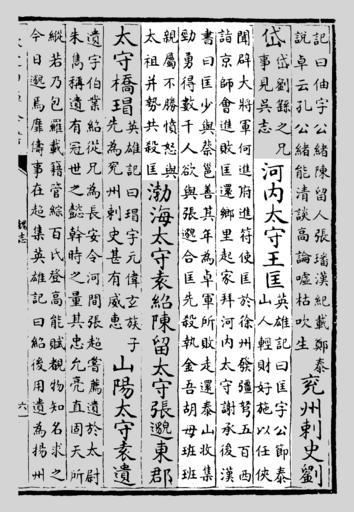 記曰伷字公緒陳留人張璠漢紀載鄭泰
說卓云孔公緒能清談高論噓枯吹生
兖州刺史劉
岱
岱劉繇之兄
事見吳志
河內太守王匡
英雄記曰匡字公節泰
山人輕財好施以任俠
聞辟大將軍何進府進符使匡於徐州發彊弩五百西
詣京師會進敗匡還鄉里起家拜河內太守謝承後漢
書曰匡少與蔡邕善其年為卓軍所敗走還泰山收集
勁勇得數千人欲與張邈合匡先殺執金吾胡母班班
親屬不勝憤怒與
太祖并勢共殺匡
渤海太守袁紹陳留太守張邈東郡
太守橋瑁
英雄記曰瑁字元偉玄族子
先為兖州刺史甚有威惠
山陽太守袁遺
遺字伯業紹從兄為長安令河間張超嘗薦遺於太尉
朱儁稱遺有冠世之懿幹時之量其忠允亮直固天所
縱若乃包羅載籍管綜百氏登高能賦覩物知名求之
今日邈焉靡儔事在超集英雄記曰紹後用遺為揚州
魏志
六